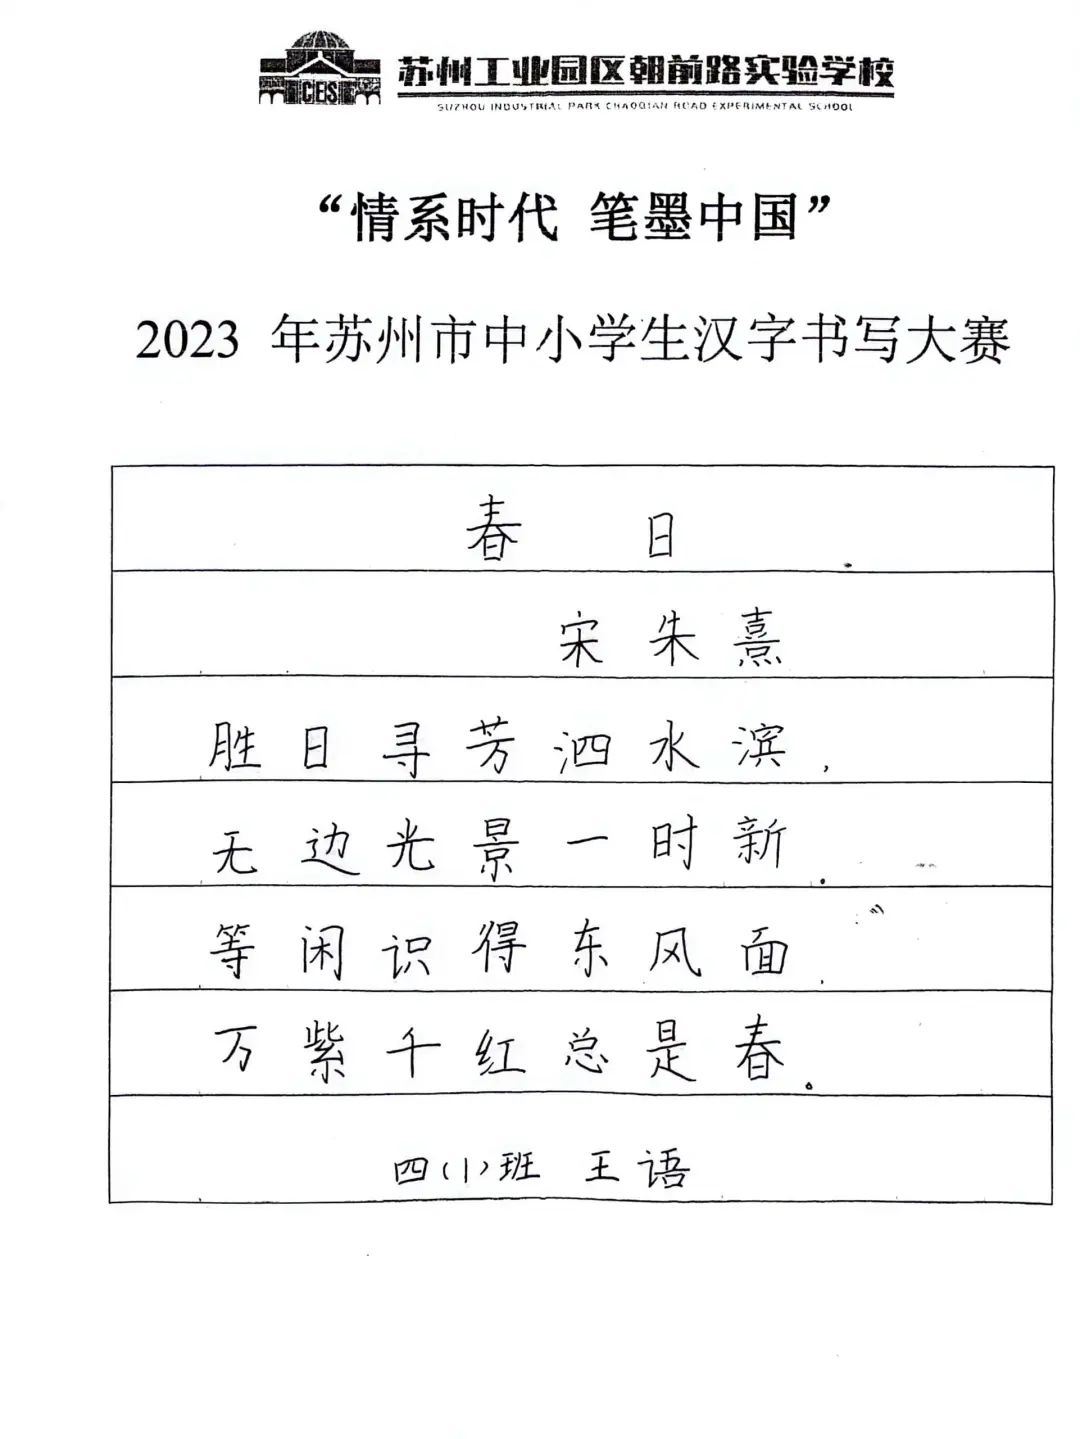 CES 苏州工业园区朝前路实验学校
SUZHOU INDUSTRIAL PARK CHAOQIAN ROAD EXPERIMENTAL SCHOOL
“情系时代 笔墨中国”
2023 年苏州市中小学生汉字书写大赛
春 日
宋 朱 熹
胜日寻芳泗水滨，
无边光景一时新.
等闲识得东风面，
万紫千红总是春。
四(1)班 王语